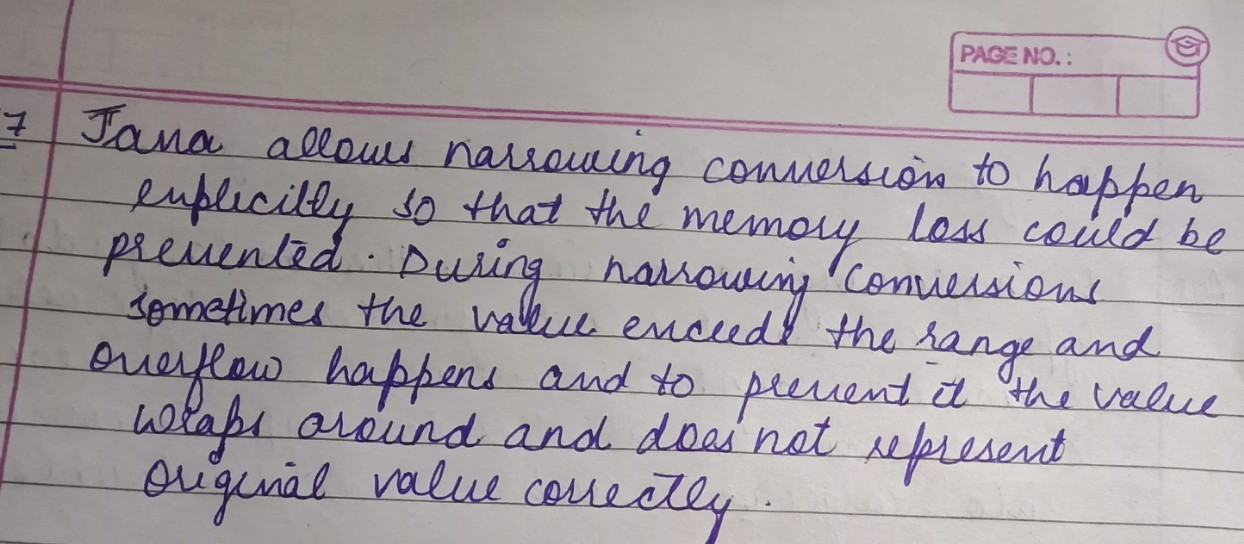 PAGE NO.:
7 Java allows narrowing conversion to happen
explicitly so that the memory loss could be
prevented. During narrowing conversions
sometimes the value exceeds the range and
overflow happens and to prevent it the value
wraps around and does not represent
original value correctly.